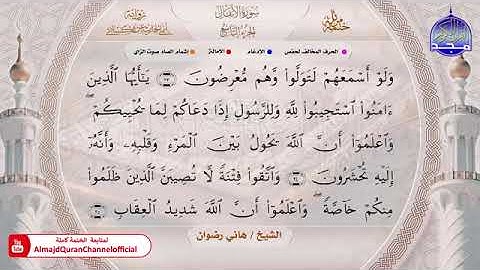 سورة الأنفال
الجزء التاسع
الحرف المخالف لحفص
الإدغام
الإمالة
إشمام الصاد صوت الزاي
مجد
وَلَوۡ أَسۡمَعَهُمۡ لَتَوَلَّواْ وَّهُم مُّعۡرِضُونَ ٢٣ يَٰٓأَيُّهَا ٱلَّذِينَ
ءَامَنُواْ ٱسۡتَجِيبُواْ لِلَّهِ وَلِلرَّسُولِ إِذَا دَعَاكُمۡ لِمَا يُحۡيِيكُمۡۖ
وَٱعۡلَمُوٓاْ أَنَّ ٱللَّهَ يَحُولُ بَيۡنَ ٱلۡمَرۡءِ وَقَلۡبِهِۦ وَأَنَّهُۥٓ
إِلَيۡهِ تُحۡشَرُونَ ٢٤ وَٱتَّقُواْ فِتۡنَةٗ لَّا تُصِيبَنَّ ٱلَّذِينَ ظَلَمُواْ
مِنكُمۡ خَآصَّةٗۖ وَٱعۡلَمُوٓاْ أَنَّ ٱللَّهَ شَدِيدُ ٱلۡعِقَابِ ٢٥
الشيخ / هاني رضوان
لمتابعة الختمة كاملة
AlmajdQuranChannelofficial